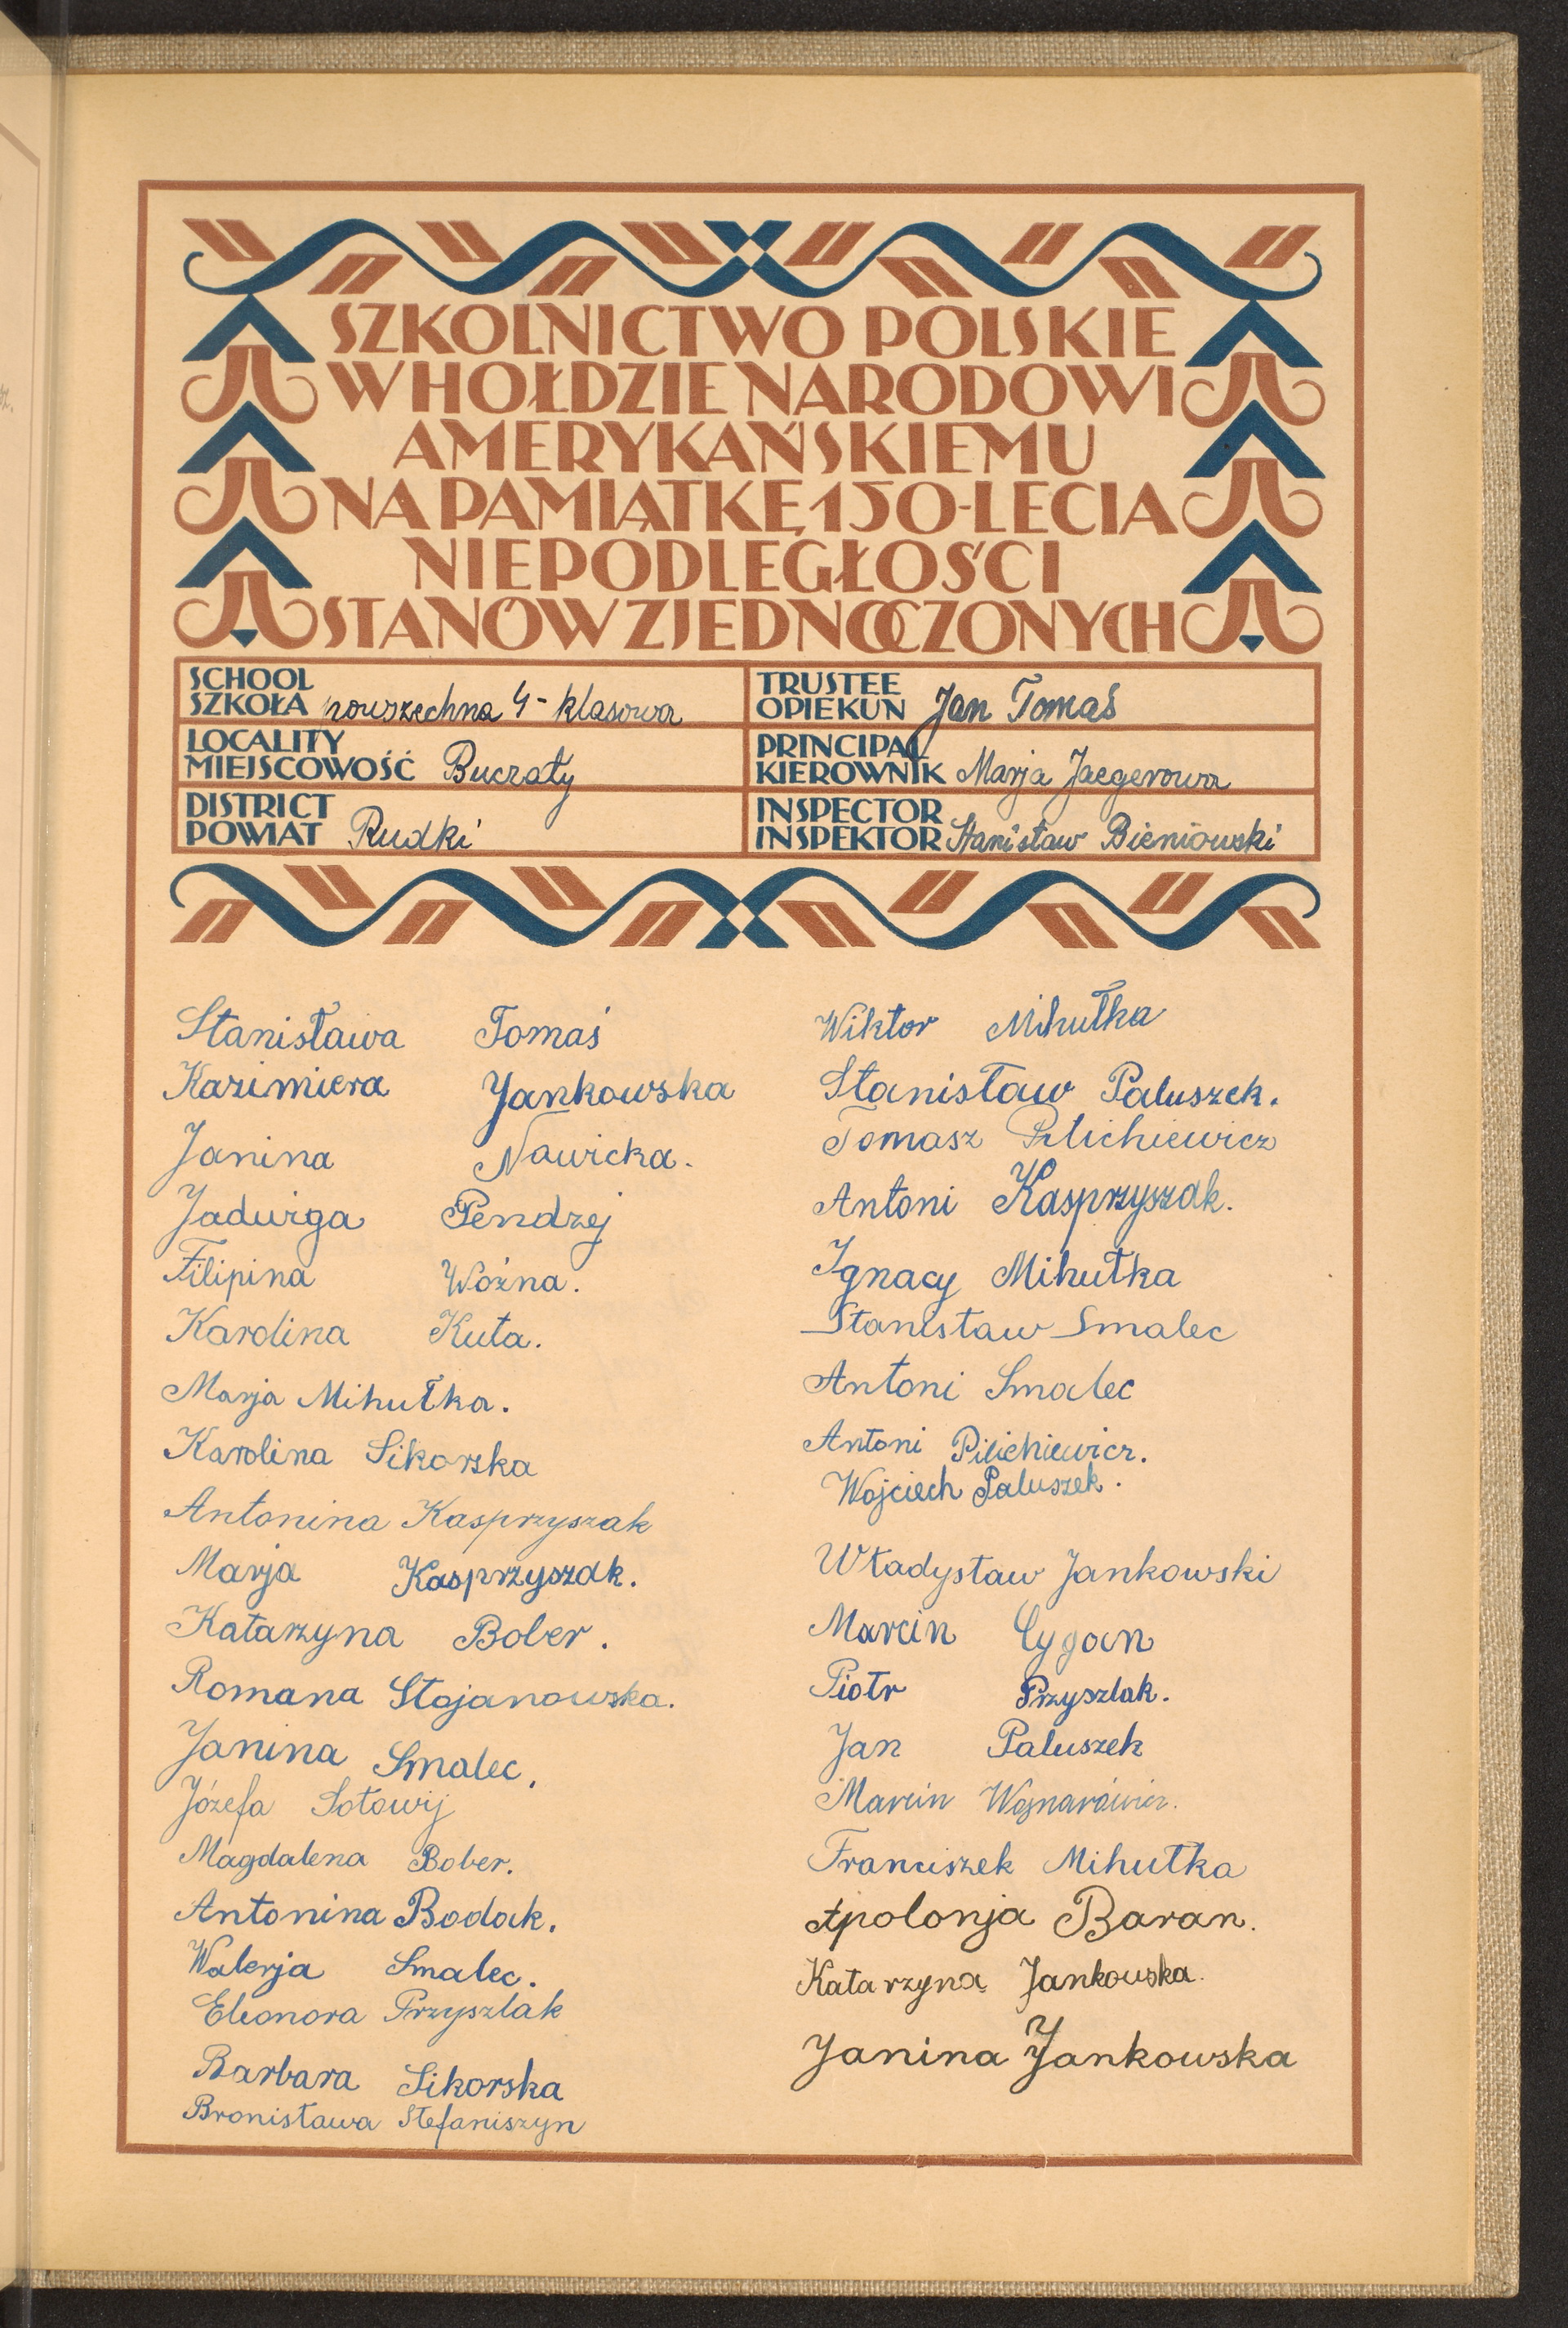 SZKOLNICTWO POLSKIE
W HOŁDZIE NARODOWI
AMERYKAŃSKIEMU
NA PAMIĄTKĘ 150-LECIA
NIEPODLEGŁOŚCI
STANÓW ZJEDNOCZONYCH
SCHOOL
SZKOŁA powszechna 4-klasowa
LOCALITY
MIEJSCOWOŚĆ Buczały
DISTRICT
POWIAT Rudki
TRUSTEE
OPIEKUN Jan Tomaś
PRINCIPAL
KIEROWNIK Marja Jaegerowa
INSPECTOR
INSPEKTOR Stanisław Bieniowski
Stanisława Tomaś
Kazimiera Jankowska
Janina Nawicka.
Jadwiga Pendzej
Filipina Woźna.
Karolina Kuta.
Marja Mihułka.
Karolina Sikorska
Antonina Kasprzyszak
Marja Kasprzyszak.
Katarzyna Bober.
Romana Stojanowska.
Janina Smalec.
Józefa Sołowij
Magdalena Bober.
Antonina Bodak.
Walerja Smalec.
Eleonora Przyszlak
Barbara Sikorska
Bronisława Stefaniszyn
Wiktor Mihułka
Stanisław Paluszek.
Tomasz Pilichiewicz
Antoni Kasprzyszak.
Ignacy Mihułka
Stanisław Smalec
Antoni Smalec
Antoni Pilichiewicz.
Wojciech Paluszek.
Władysław Jankowski
Marcin Cygan
Piotr Przyszlak.
Jan Paluszek
Marcin Wojnarowicz.
Franciszek Mihułka
Apolonja Baran.
Katarzyna Jankowska.
Janina Jankowska